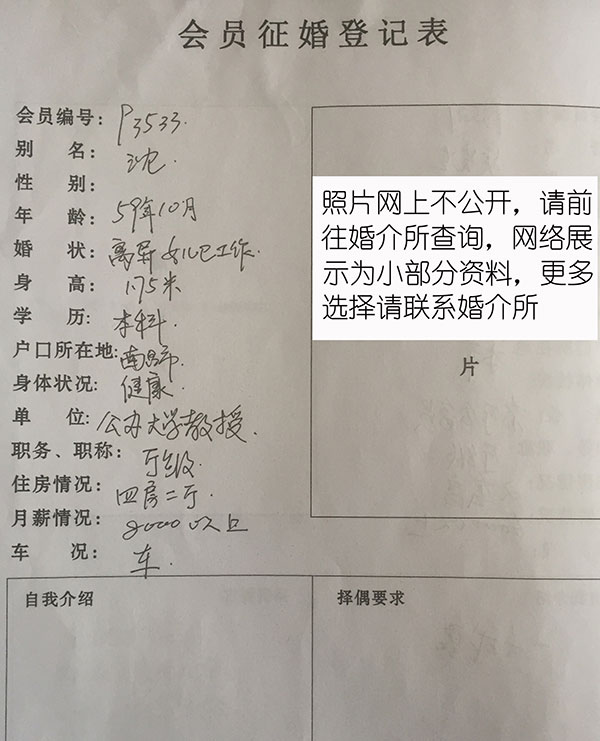 会员征婚登记表
会员编号：P3533.
别　名：沈.
性　别：
年　龄：59年10月
婚　状：离异 女儿已工作.
身　高：1.75米
学　历：本科.
户口所在地：南昌市.
身体状况：健康.
单　位：公办大学教授.
职务、职称：厅级.
住房情况：四房二厅.
月薪情况：8000以上
车　况：车.
照片网上不公开，请前
往婚介所查询，网络展
示为小部分资料，更多
选择请联系婚介所
片
自我介绍
择偶要求